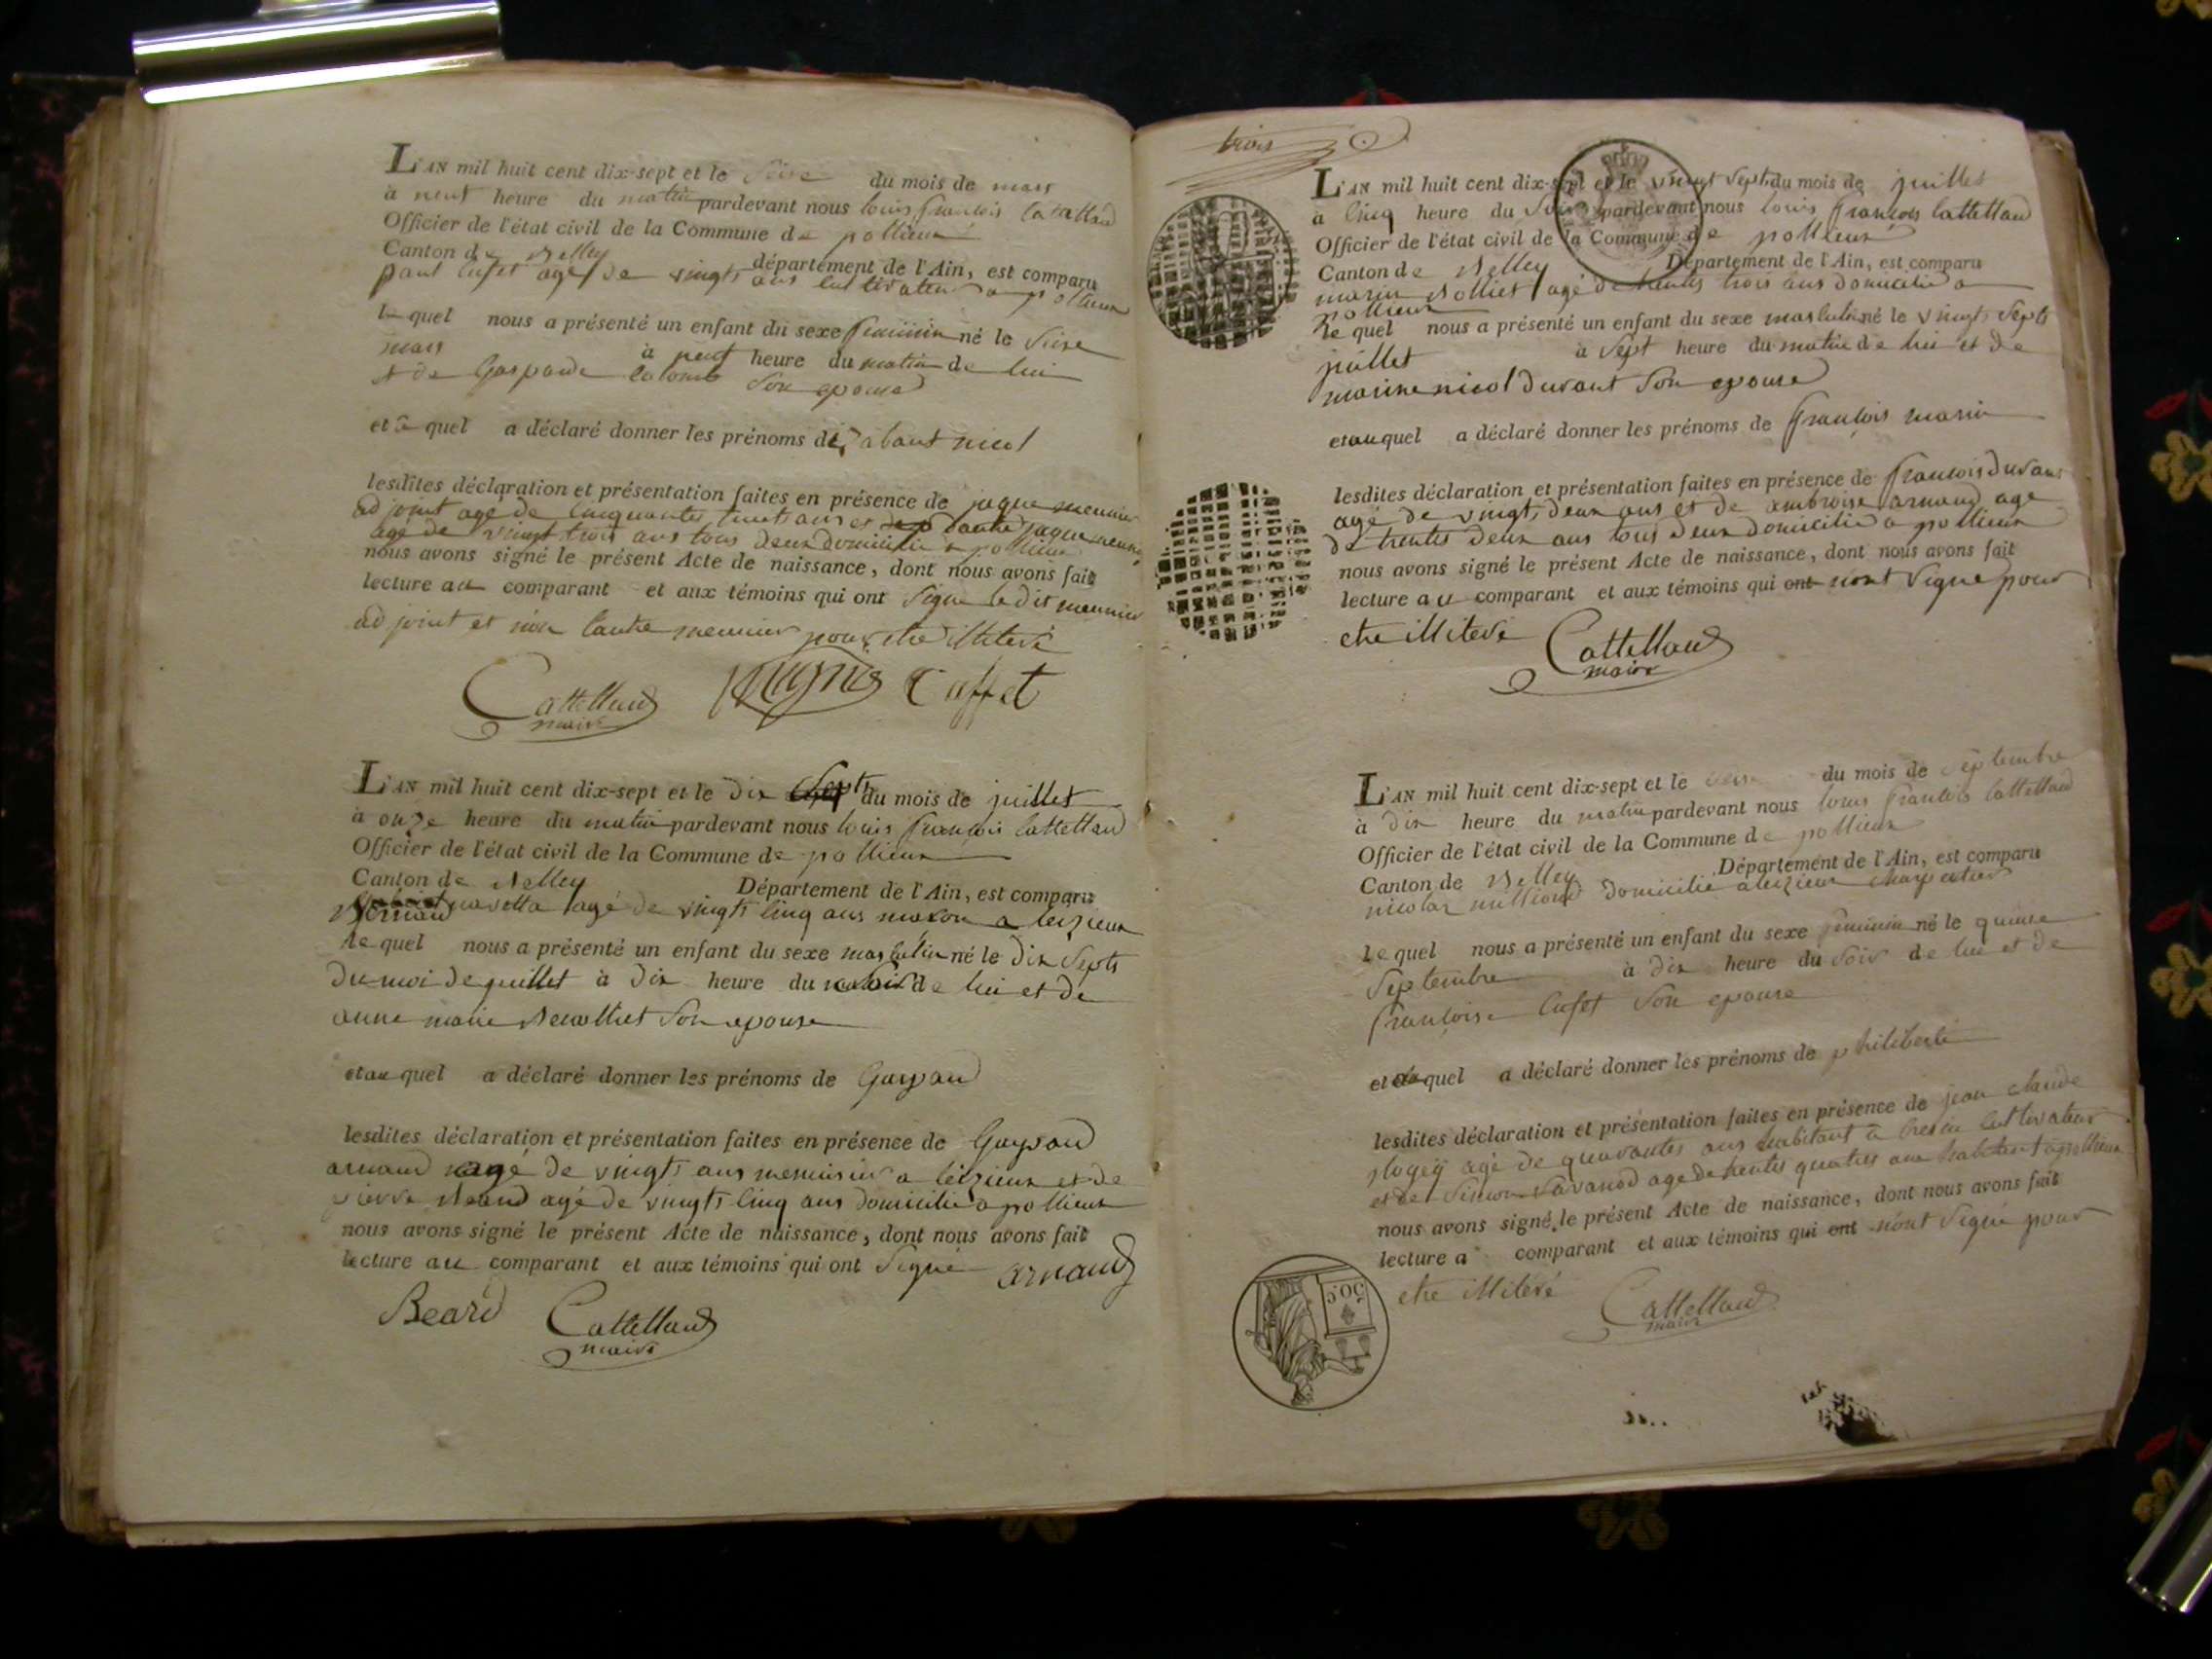 L'AN mil huit cent dix-sept et le du mois de mars
à neuf heure du matin pardevant nous louis françois
Officier de l'état civil de la Commune de pollieux
Canton de Belley
département de l'Ain, est comparu
paul cufet agé de vingt ans cultivateur a pollieux
le quel nous a présenté un enfant du sexe feminin né le
mars à neuf heure du matin de lui
et de Gasparde colomb son epouse
et a quel a déclaré donner les prénoms de nicol
lesdites déclaration et présentation faites en présence de jaque meunier
ad joint agé de cinquante ans et jaque meunier
agé de vingt trois ans tous deux domicilié a pollieux
nous avons signé le présent Acte de naissance, dont nous avons fait
lecture au comparant et aux témoins qui ont signe le dit meunier
ad joint et non lautre meunier pour etre illiteré
Cattelland
maire
Caffet
L'AN mil huit cent dix-sept et le dix septs du mois de juillet
à onze heure du matin pardevant nous louis françois Cattelland
Officier de l'état civil de la Commune de pollieux
Canton de Belley
Département de l'Ain, est comparu
agé de vingt cinq ans a leizieux
le quel nous a présenté un enfant du sexe masculin né le dix septs
du moi de juillet à dix heure du de lui et de
anne marie son epouse
et au quel a déclaré donner les prénoms de Gaspard
lesdites déclaration et présentation faites en présence de Gaspard
arnaud agé de vingt ans menuisier a leizieux et de
pierre Beard agé de vingt cinq ans domicilié a pollieux
nous avons signé le présent Acte de naissance, dont nous avons fait
lecture au comparant et aux témoins qui ont signé arnaud
Beard Cattelland
maire
trois
L'AN mil huit cent dix-sept et le vingt sept du mois de juillet
à cinq heure du soir pardevant nous louis françois Cattelland
Officier de l'état civil de la Commune de pollieux
Canton de Belley
Département de l'Ain, est comparu
marin Bolliet agé de trentes trois ans domicilié a
pollieux
le quel nous a présenté un enfant du sexe masculin né le vingt septs
juillet à sept heure du matin de lui et de
nicol Durant son epouse
et au quel a déclaré donner les prénoms de françois marin
lesdites déclaration et présentation faites en présence de francois durant
agé de vingt deux ans et de ambroise arnaud age
de trentes deux ans tous deux domicilié a pollieux
nous avons signé le présent Acte de naissance, dont nous avons fait
lecture au comparant et aux témoins qui ont n'ont signé pour
etre illiteré Cattelland
maire
L'AN mil huit cent dix-sept et le du mois de septembre
à dix heure du matin pardevant nous louis francois Cattelland
Officier de l'état civil de la Commune de pollieux
Canton de Belley
Département de l'Ain, est comparu
nicolas domicilié a leizieux charpentier
le quel nous a présenté un enfant du sexe feminin né le quinze
septembre à dix heure du soir de lui et de
françoise cufet son epouse
et quel a déclaré donner les prénoms de philiberte
lesdites déclaration et présentation faites en présence de jean claude
agé de quarantes ans habitant a cultivateur
et de Simon Savarod age de trentes quatres ans habitant a pollieux
nous avons signé le présent Acte de naissance, dont nous avons fait
lecture a comparant et aux témoins qui ont n'ont signé pour
etre illiteré
Cattelland
maire
50 C